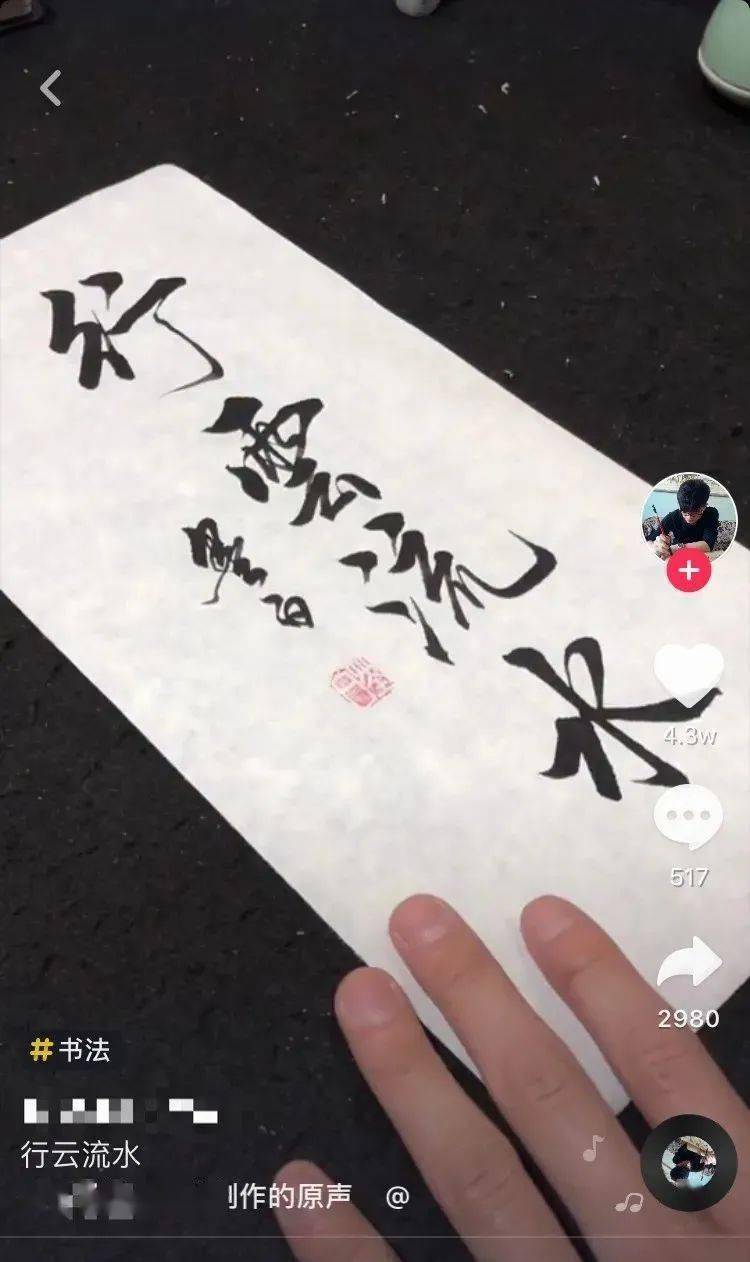 行雲流水
4.3w
517
2980
#书法
行云流水
作的原声 @